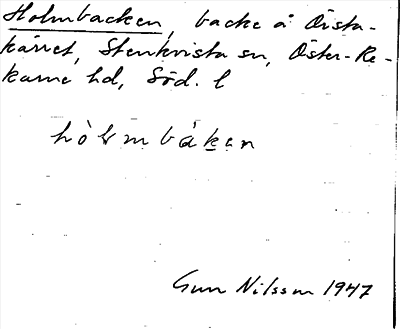 Holmbacken, backe å Örsta-
kärret, Stenkvista sn, Öster-Re-
karne hd, Söd. l
hòlmbáken
Gun Nilsson 1947